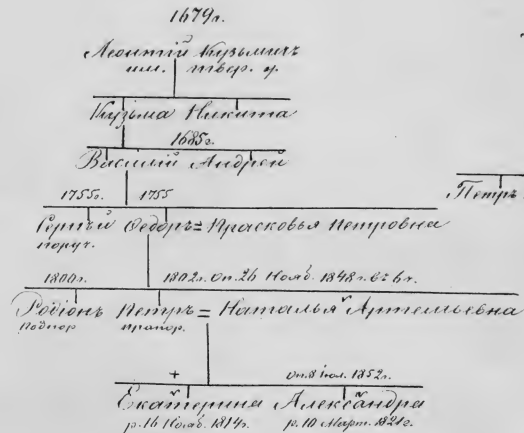 1679г.
Леонтій Кузьмичъ
им. твер. у.
Кузьма Никита
1685г.
Василій Андрей
1755г. 1755
Петръ
Сергѣй Ѳедоръ = Прасковья Петровна
поруч.
1800г. 1802г. оп. 26 Нояб. 1848г.
Родіонъ Петръ = Наталья Артемьевна
прапор.
+ 1852г.
Екатерина Александра
р. 16 Нояб. 1814г. р. 10 Март. 1821г.